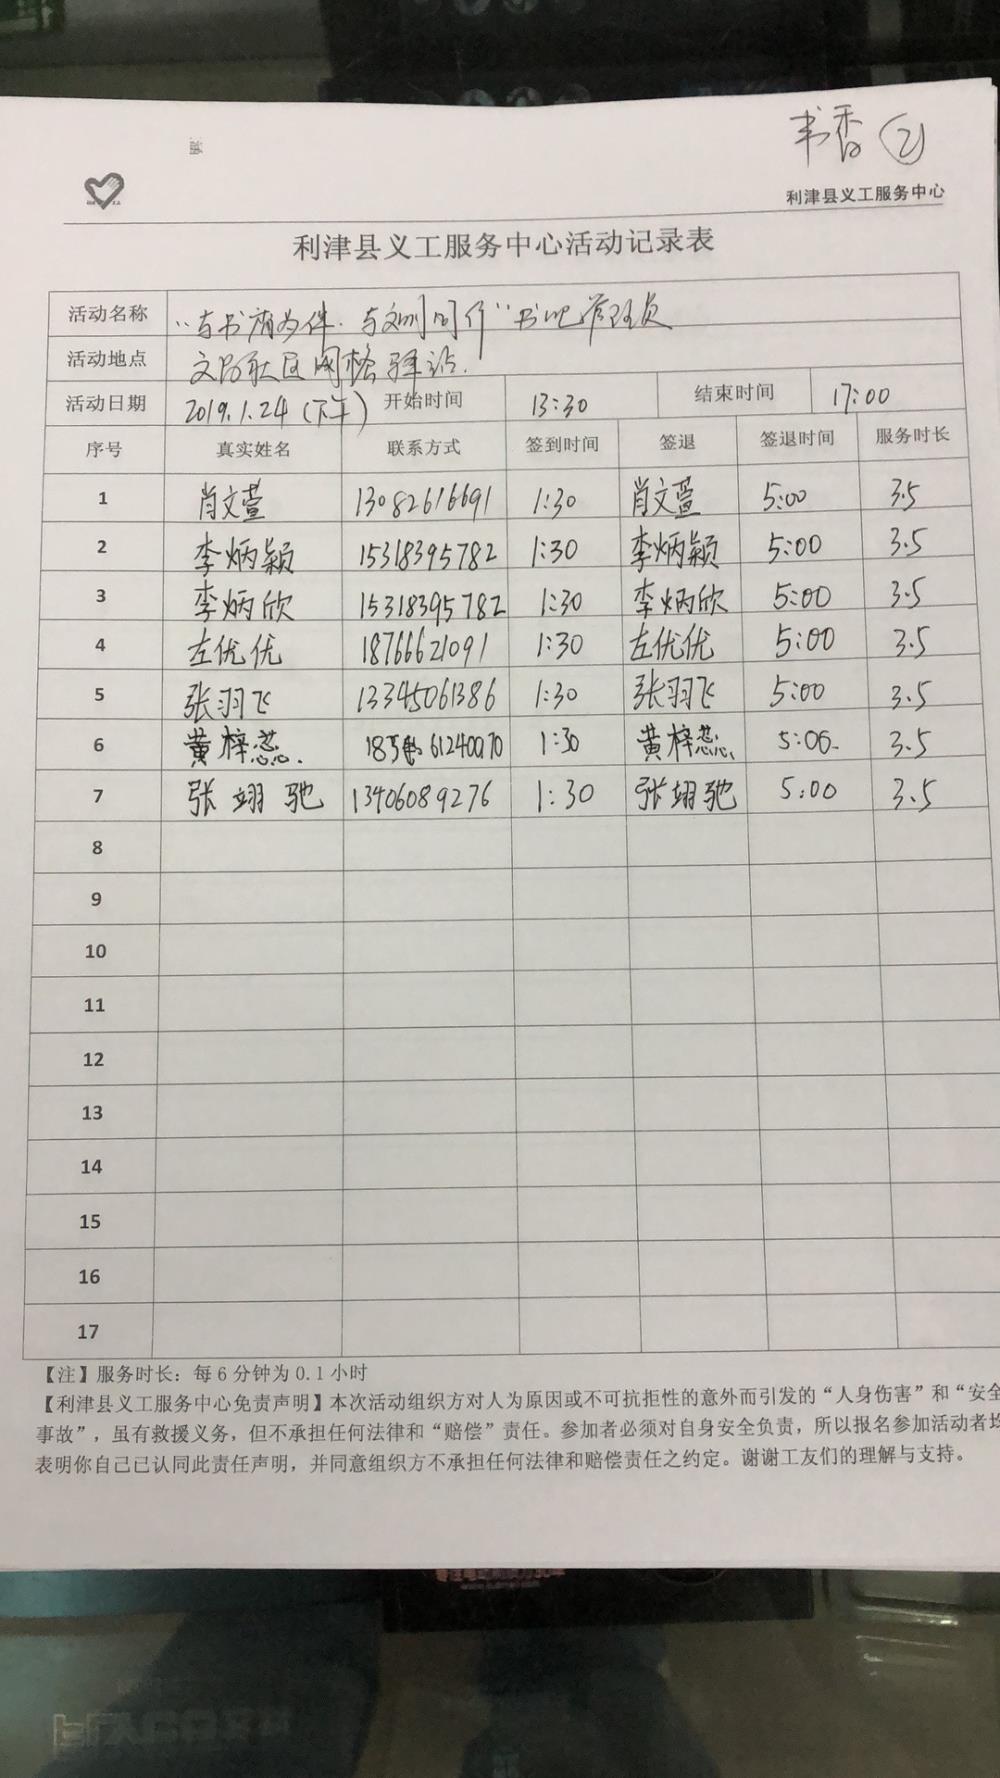 书香 ②
利津县义工服务中心
利津县义工服务中心活动记录表
活动名称 “与书为伴·与文明同行”书吧管理员
活动地点 文昌社区网格驿站.
活动日期 2019.1.24(下午) 开始时间 13:30 结束时间 17:00
序号 真实姓名 联系方式 签到时间 签退 签退时间 服务时长
1 肖文萱 13082616691 1:30 肖文萱 5:00 3.5
2 李炳颖 15318395782 1:30 李炳颖 5:00 3.5
3 李炳欣 15318395782 1:30 李炳欣 5:00 3.5
4 左优优 18766621091 1:30 左优优 5:00 3.5
5 张羽飞 13345061386 1:30 张羽飞 5:00 3.5
6 黄梓蕊. 61240070 1:30 黄梓蕊. 5:00. 3.5
7 张翊驰 13406089276 1:30 张翊驰 5:00 3.5
8
9
10
11
12
13
14
15
16
17
【注】服务时长：每6分钟为0.1小时
【利津县义工服务中心免责声明】本次活动组织方对人为原因或不可抗拒性的意外而引发的“人身伤害”和“安全
事故”，虽有救援义务，但不承担任何法律和“赔偿”责任。参加者必须对自身安全负责，所以报名参加活动者均
表明你自己已认同此责任声明，并同意组织方不承担任何法律和赔偿责任之约定。谢谢工友们的理解与支持。